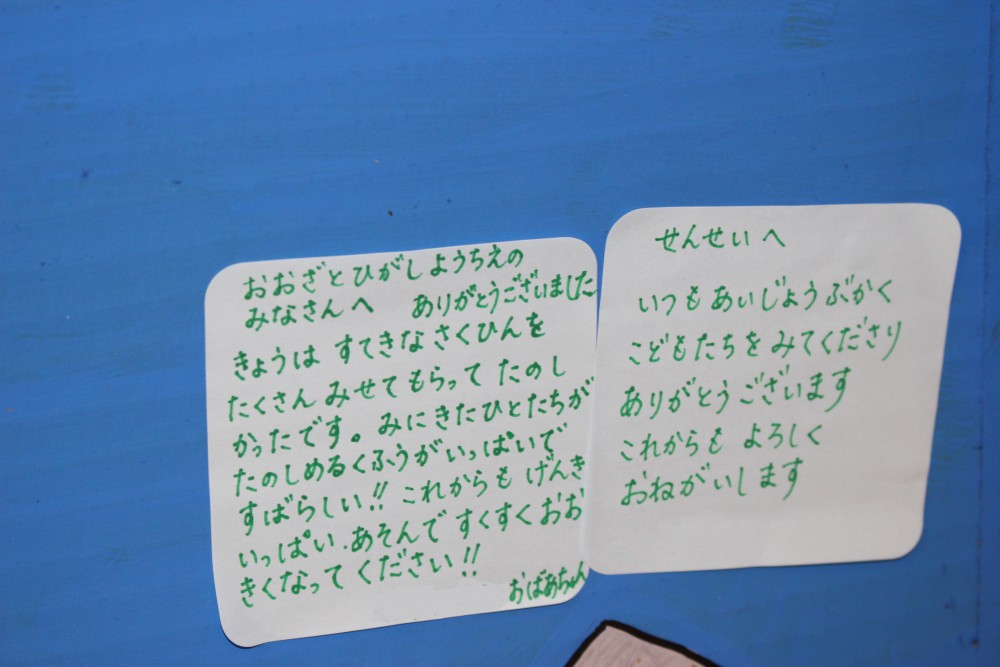 おおざとひがしようちえの
みなさんへ ありがとうございました
きょうは すてきなさくひんを
たくさん みせてもらって たのし
かったです。みにきたひとたちが
たのしめるくふうがいっぱいで
すばらしい!! これからも げんき
いっぱい、あそんで すくすくおお
きくなってください!!
おばあちゃん
せんせいへ
いつもあいじょうぶかく
こどもたちをみてくださり
ありがとうございます
これからも よろしく
おねがいします